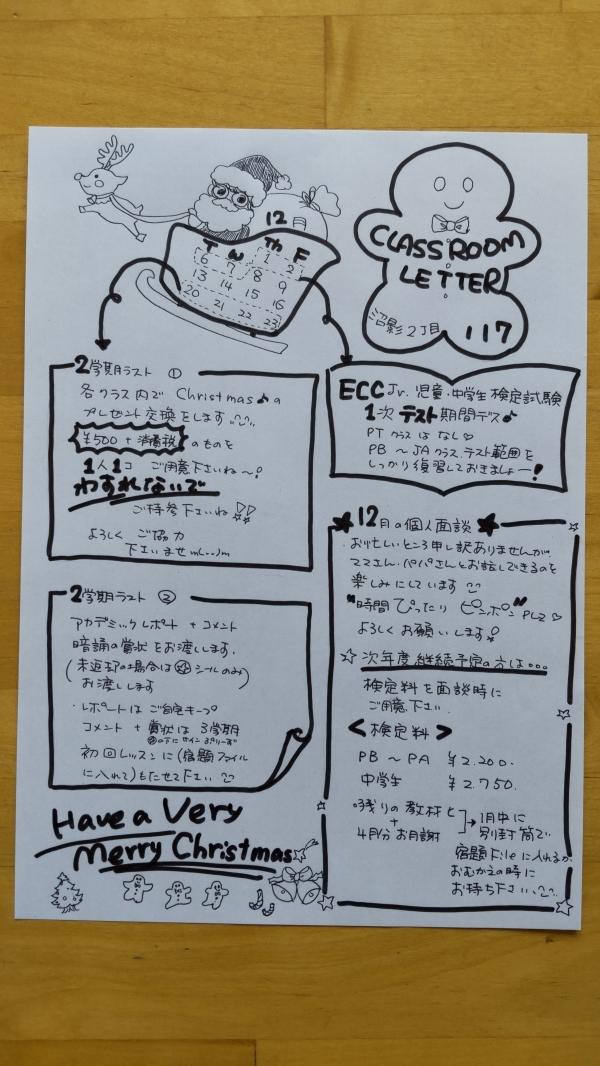 CLASSROOM
LETTER
沼影2丁目 117
12
T W Th F
1 2
6 7 8 9
13 14 15 16
20 21 22 23
2学期ラスト ①
各クラス内で Christmas♪の
プレゼント交換をします。
¥500+消費税 のものを
1人1コ ご用意下さいね〜!
わすれないで
ご持参下さいね!!
よろしく ご協力
下さいませ m(_ _)m
ECC Jr. 児童・中学生 検定試験
1次 テスト期間デス♪
PT クラス は なし♡
PB 〜 JA クラス、テスト範囲を
しっかり復習しておきましょー!
2学期ラスト ②
アカデミック レポート + コメント
暗誦の賞状 をお渡しします.
(未返却の場合は シールのみ)
お渡しします
・レポートは ご自宅キープ
コメント + 賞状は 3学期
の下に サイン プリーズ
初回レッスンに(宿題ファイル
に入れて)もたせて下さい
★12月の個人面談★
・お忙しいところ申し訳ありませんが、
ママさん・パパさんとお話しできるのを
楽しみにしています
"時間ぴったり ピンポン" PLZ♡
よろしく お願いします!
☆次年度 継続予定の方は…
検定料を面談時に
ご用意下さい.
<検定料>
PB 〜 PA ¥2.200.
中学生 ¥2.750.
◦残りの教材と
+
4月分お月謝
→1月中に
別封筒で
宿題Fileに入れるか
おむかえの時に
お持ち下さい.
Have a Very
Merry Christmas